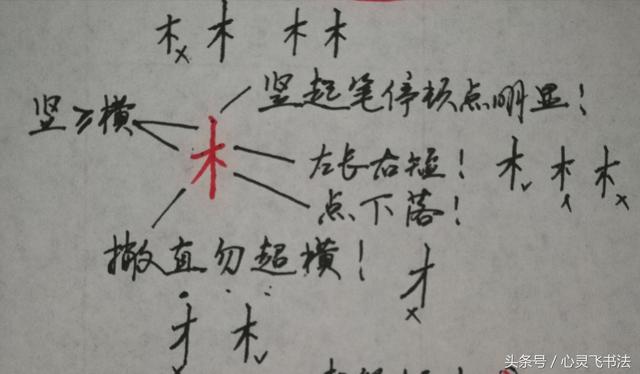 木 木 木 木
竖起笔停顿点明显！
竖≥横
木
左长右短！ 木 木 木
点下落！
撇直勿超横！
才
才 木
头条号 / 心灵飞书法